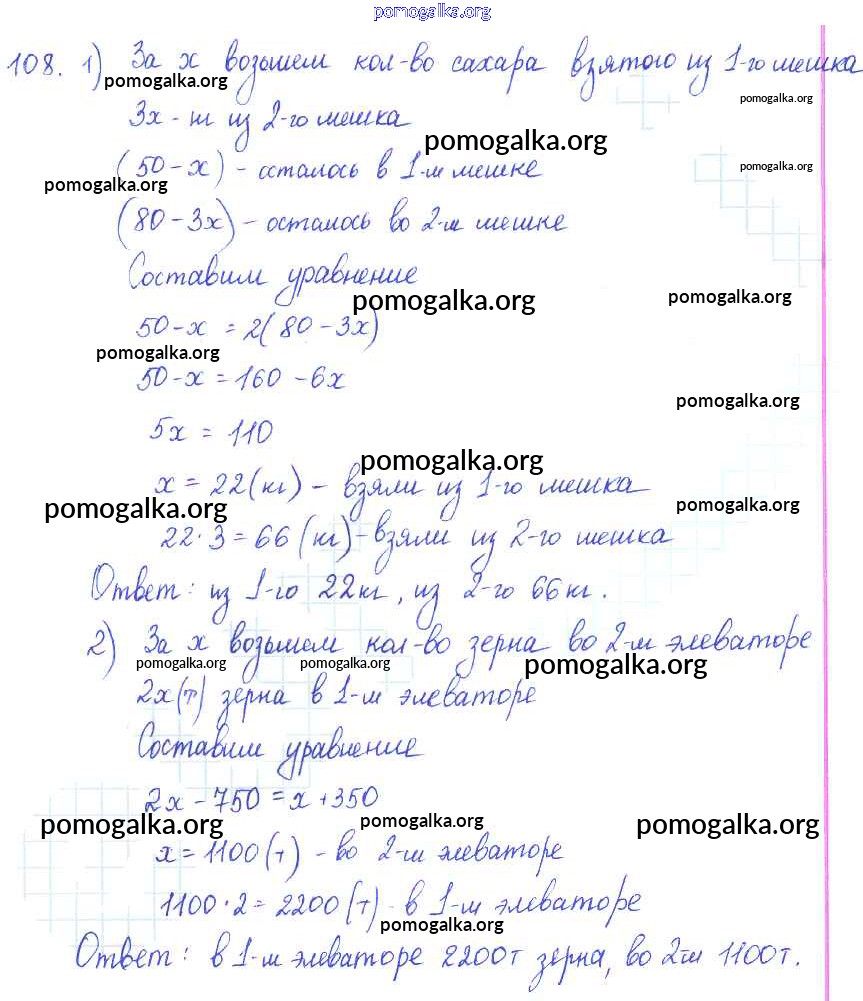 pomogalka.org
108. 1) За x возьмем кол-во сахара взятого из 1-го мешка
pomogalka.org
pomogalka.org
3x - ш из 2-го мешка
pomogalka.org
(50-x) - осталось в 1-м мешке
pomogalka.org
pomogalka.org
(80-3x) - осталось во 2-м мешке
Составим уравнение
pomogalka.org
pomogalka.org
50-x = 2(80-3x)
pomogalka.org
50-x = 160-6x
pomogalka.org
5x = 110
pomogalka.org
x = 22(кг) - взяли из 1-го мешка
pomogalka.org
pomogalka.org
22·3=66(кг)-взяли из 2-го мешка
Ответ: из 1-го 22кг, из 2-го 66кг.
2) За x возьмем кол-во зерна во 2-м элеваторе
pomogalka.org
pomogalka.org
pomogalka.org
2x(т) зерна в 1-м элеваторе
Составим уравнение
2x-750=x+350
pomogalka.org
pomogalka.org
pomogalka.org
x=1100(т) - во 2-м элеваторе
1100·2=2200(т)- в 1-м элеваторе
pomogalka.org
Ответ: в 1-м элеваторе 2200т зерна, во 2-м 1100т.